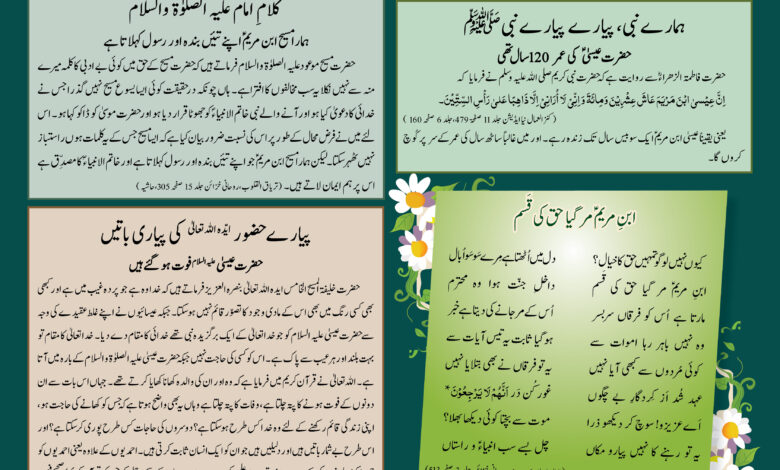 ہمارے نبی، پیارے پیارے نبی ﷺ
حضرت عیسیٰؑ کی عمر 120سال تھی
حضرت فاطمۃ الزھراءؓ سے روایت ہے کہ حضرت نبی کریم صلی اللہ علیہ وسلم نے فرمایا کہ
اِنَّ عِیْسَی ابْنَ مَرْیَمَ عَاشَ عِشْرِیْنَ وَمِائَۃً وَاِنِّیْ لَا اُرَانِیْ اِلَّا ذَاھِبًا عَلٰی رَأْسِ السِّتِّیْنَ۔
(کنز العمال نیا ایڈیشن جلد 11 صفحہ 479، جلد 6 صفحہ 160)
یعنی یقیناً عیسیٰ ابن مریم ایک سو بیس سال تک زندہ رہے۔ اور میں غالباً ساٹھ سال کی عمر کے سر پر کوچ
کروں گا۔
کلامِ امام علیہ الصلوٰۃ والسلام
ہمارا مسیح ابن مریمؑ اپنے تئیں بندہ اور رسول کہلاتا ہے
حضرت مسیح موعود علیہ الصلوٰۃ والسلام فرماتے ہیں کہ حضرت مسیح کے حق میں کوئی بے ادبی کا کلمہ میرے
منہ سے نہیں نکلا یہ سب مخالفوں کا افترا ہے۔ ہاں چونکہ درحقیقت کوئی ایسا یسوع مسیح نہیں گذرا جس نے
خدائی کا دعویٰ کیا ہو اور آنے والے نبی خاتم الانبیاءؐ کو جھوٹا قرار دیا ہو اور حضرت موسیٰ کو ڈاکو کہا ہو۔ اس
لئے میں نے فرض محال کے طور پر اس کی نسبت ضرور بیان کیا ہے کہ ایسا مسیح جس کے یہ کلمات ہوں راستباز
نہیں ٹھہر سکتا۔ لیکن ہمارا مسیح ابن مریم جو اپنے تئیں بندہ اور رسول کہلاتا ہے اور خاتم الانبیاءؐ کا مصدق ہے
اس پر ہم ایمان لاتے ہیں۔ (تریاق القلوب، روحانی خزائن جلد 15 صفحہ 305، حاشیہ)
ابنِ مریمؑ مر گیا حق کی قَسَم
کیوں نہیں لوگو تمہیں حق کا خیال؟ دل میں اُٹھتا ہے مرے سَو سَو اُبال
ابنِ مریم مر گیا حق کی قسم داخلِ جنّت ہوا وہ محترم
مارتا ہے اُس کو فرقاں سربسر اُس کے مر جانے کی دیتا ہے خبر
وہ نہیں باہر رہا اموات سے ہو گیا ثابت یہ تیس آیات سے
کوئی مُردوں سے کبھی آیا نہیں یہ تو فرقاں نے بھی بتلایا نہیں
عہد شُد از کِردگارِ بے چگوں غور کُن در اَنَّھُمْ لَا یَرْجِعُوْنَ*
اے عزیزو! سوچ کر دیکھو ذرا موت سے بچتا کوئی دیکھا بھلا؟
یہ تو رہنے کا نہیں پیارو مکاں چل بسے سب انبیاءؑ و راستاں
پیارے حضور ایدہ اللہ تعالیٰ کی پیاری باتیں
حضرت عیسیٰ علیہ السلام فوت ہو گئے ہیں
حضرت خلیفۃ المسیح الخامس ایدہ اللہ تعالیٰ بنصرہ العزیز فرماتے ہیں کہ خدا وہ ہے جو پردہ غیب میں ہے اور کبھی
بھی کسی رنگ میں بھی اس کے مادی وجود کا تصور قائم نہیں ہو سکتا۔ جبکہ عیسائیوں نے اپنے غلط عقیدے کی وجہ
سے حضرت عیسیٰ علیہ السلام کو جو خدا تعالیٰ کے ایک برگزیدہ نبی تھے خدائی کا مقام دے دیا۔ خدا تعالیٰ کا مقام تو
بہت بلند اور ہر عیب سے پاک ہے۔ اس کو کسی کی حاجت نہیں جبکہ حضرت عیسیٰ علیہ الصلوٰۃ والسلام کے بارہ میں آتا
ہے۔ اللہ تعالیٰ نے قرآن کریم میں فرمایا ہے کہ وہ اور ان کی والدہ کھانا کھایا کرتے تھے۔ جہاں اس بات سے ان
دونوں کے فوت ہونے کا پتہ چلتا ہے، وفات کا پتہ چلتا ہے وہاں یہ بھی واضح ہوتا ہے کہ جس کو کھانے کی حاجت ہو،
اپنی زندگی قائم رکھنے کے لئے وہ خدا کس طرح ہو سکتا ہے؟ دوسروں کی حاجات کس طرح پوری کر سکتا ہے؟ اور
اس طرح بے شمار باتیں ہیں اور دلیلیں ہیں جو ان کو ایک انسان ثابت کرتی ہیں۔ احمدیوں کے علاوہ یعنی احمدیوں کو